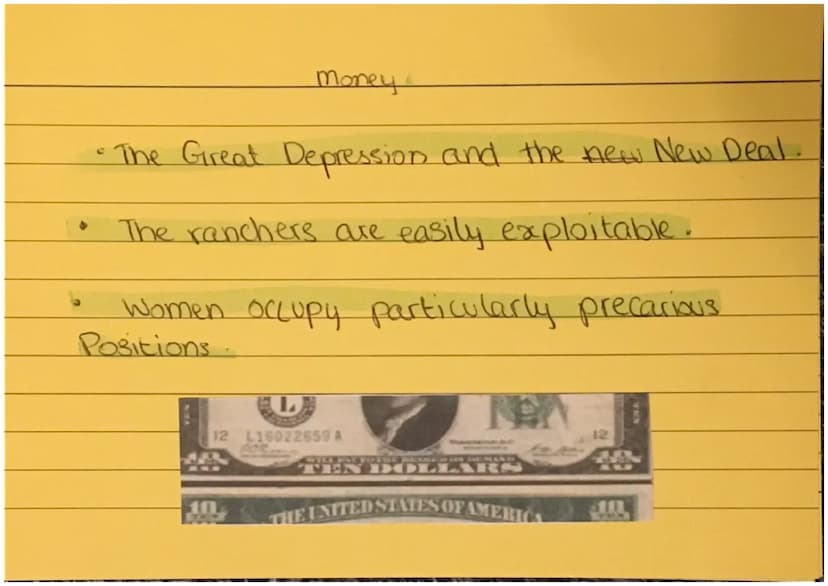 Money
• The Great Depression and the new New Deal.
• The ranchers are easily exploitable.
• Women occupy particularly precarious
Positions.
L
12 L16022659A 12
WILL PAY TO THE BEARER ON DEMAND
10 TEN DOLLARS 10
10 THE UNITED STATES OF AMERICA 10